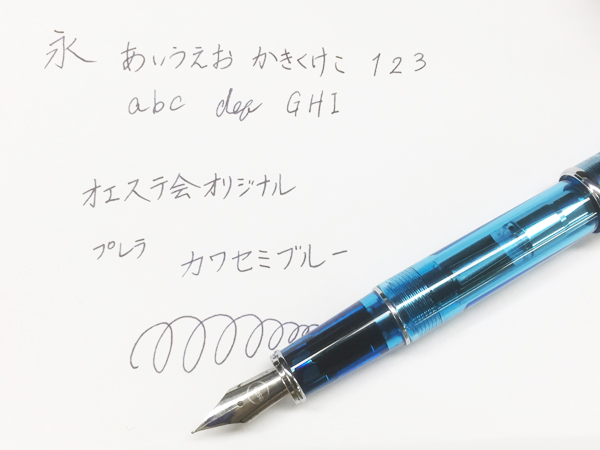 永 あいうえお かきくけこ 123
abc def GHI
オエステ会オリジナル
プレラ カワセミブルー